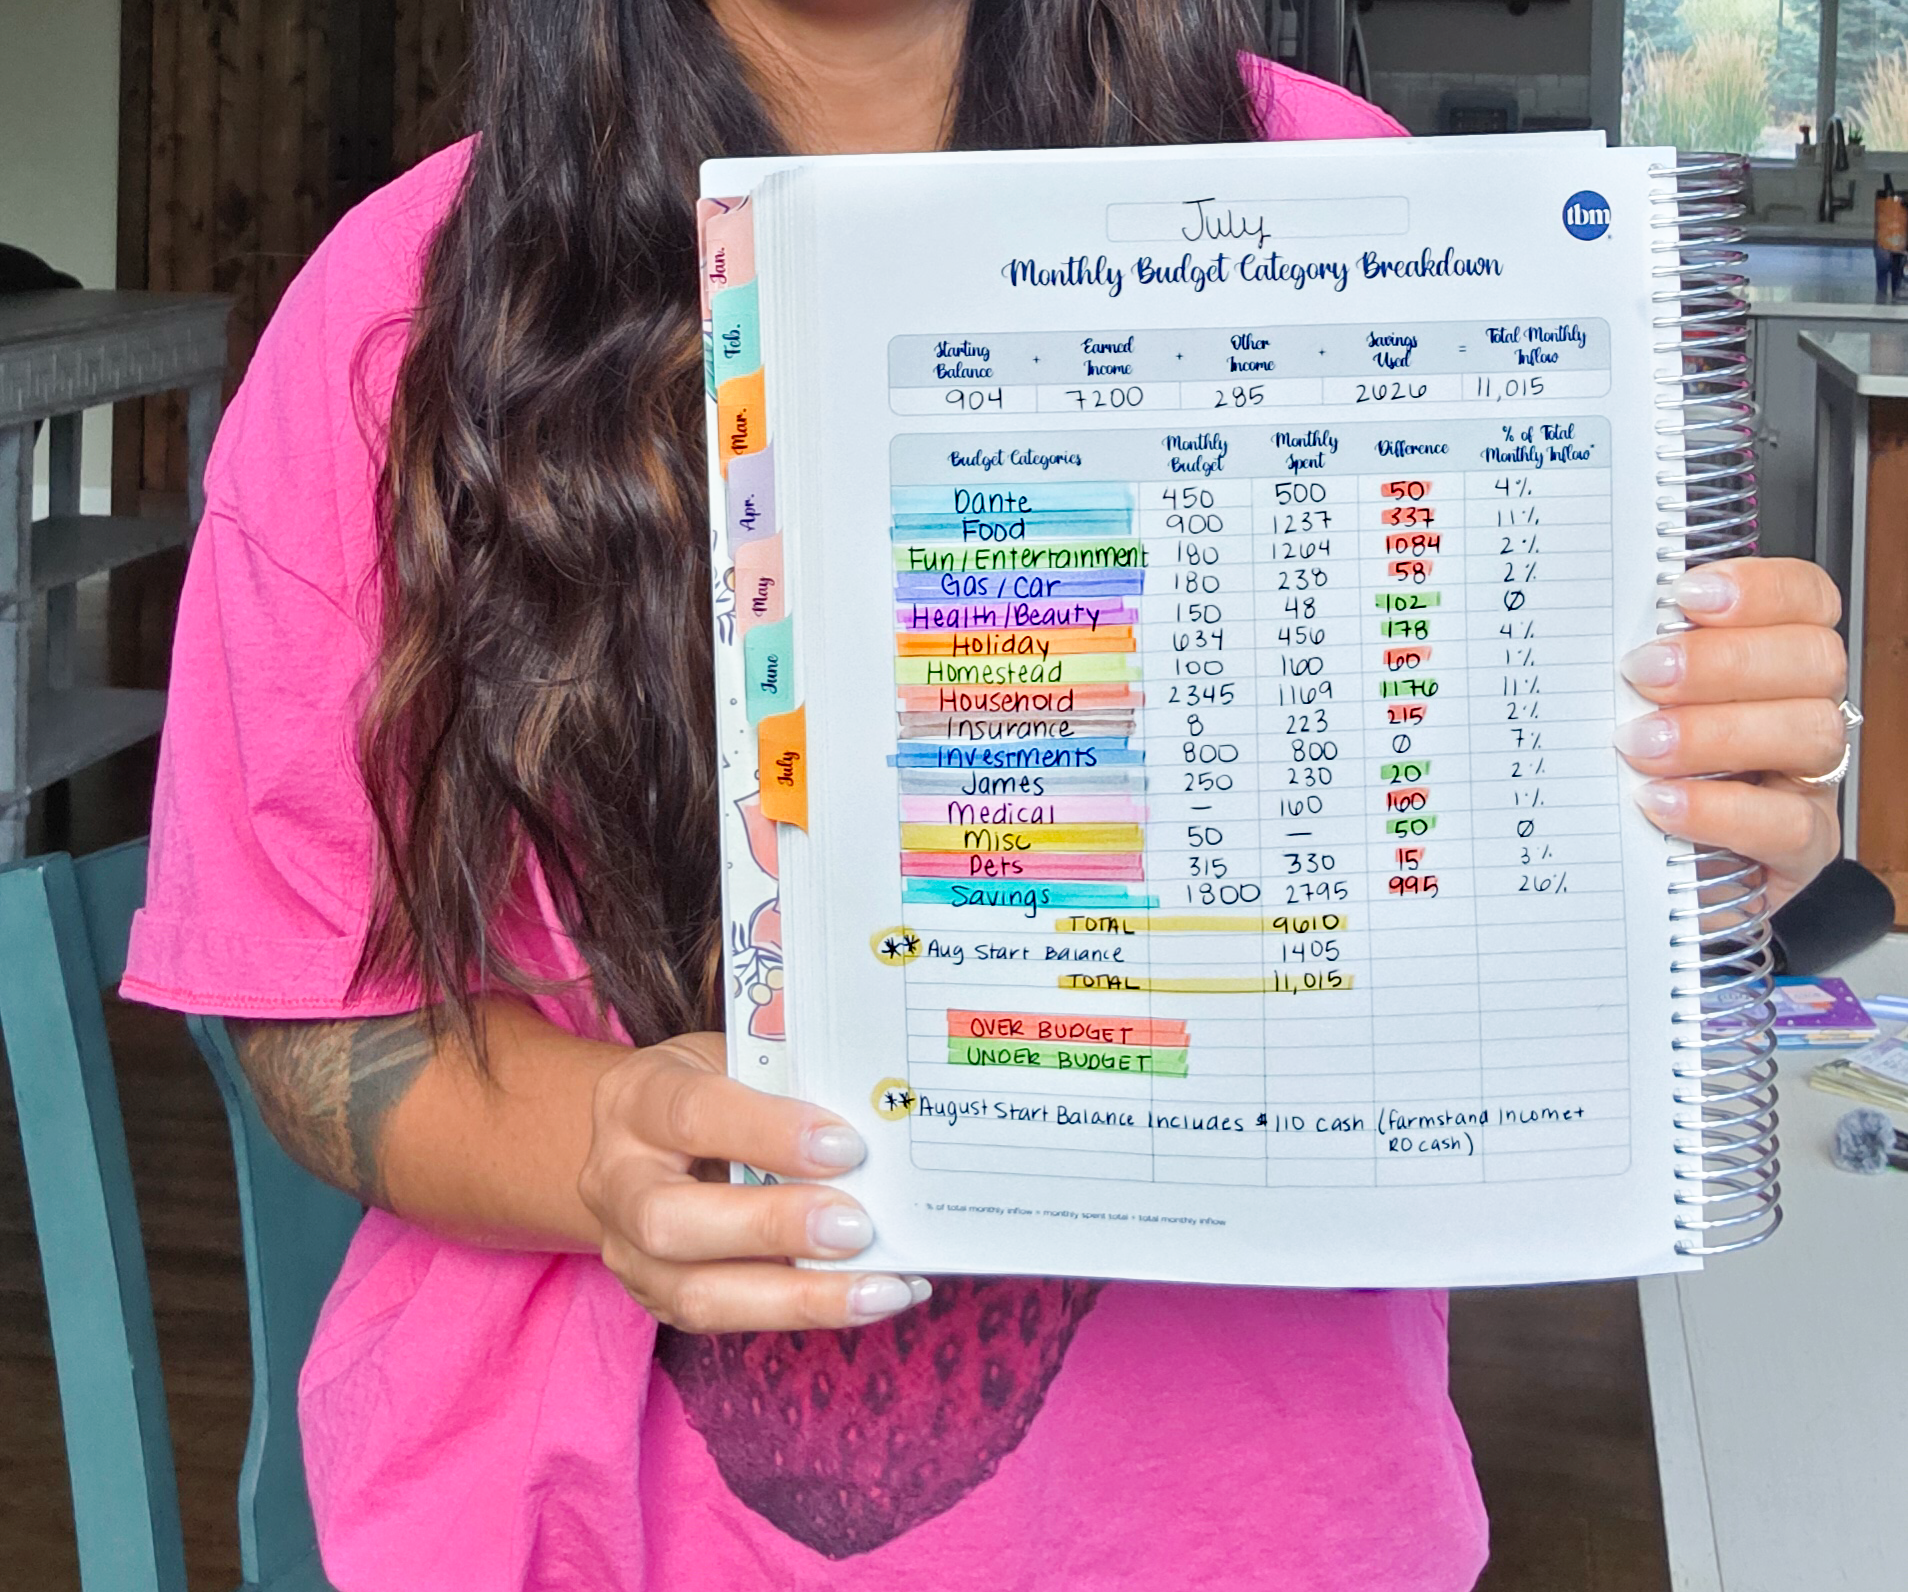 July
tbm
Monthly Budget Category Breakdown
Starting Balance + Earned Income + Other Income + Savings Used = Total Monthly Inflow
904 7200 285 2626 11,015
Budget Categories Monthly Budget Monthly Spent Difference % of Total Monthly Inflow*
Dante 450 500 50 4%
Food 900 1237 337 11%
Fun/Entertainment 180 1264 1084 2%
Gas/Car 180 238 58 2%
Health/Beauty 150 48 102 Ø
Holiday 634 456 178 4%
Homestead 100 160 60 1%
Household 2345 1169 1176 11%
Insurance 8 223 215 2%
Investments 800 800 Ø 7%
James 250 230 20 2%
Medical — 160 160 1%
Misc 50 — 50 Ø
Pets 315 330 15 3%
Savings 1800 2795 995 26%
TOTAL 9610
** Aug Start Balance 1405
TOTAL 11,015
OVER BUDGET
UNDER BUDGET
** August Start Balance includes $110 cash (farmstand income +
RO cash)
* % of total monthly inflow = monthly spent total ÷ total monthly inflow
Jan.
Feb.
Mar.
Apr.
May
June
July